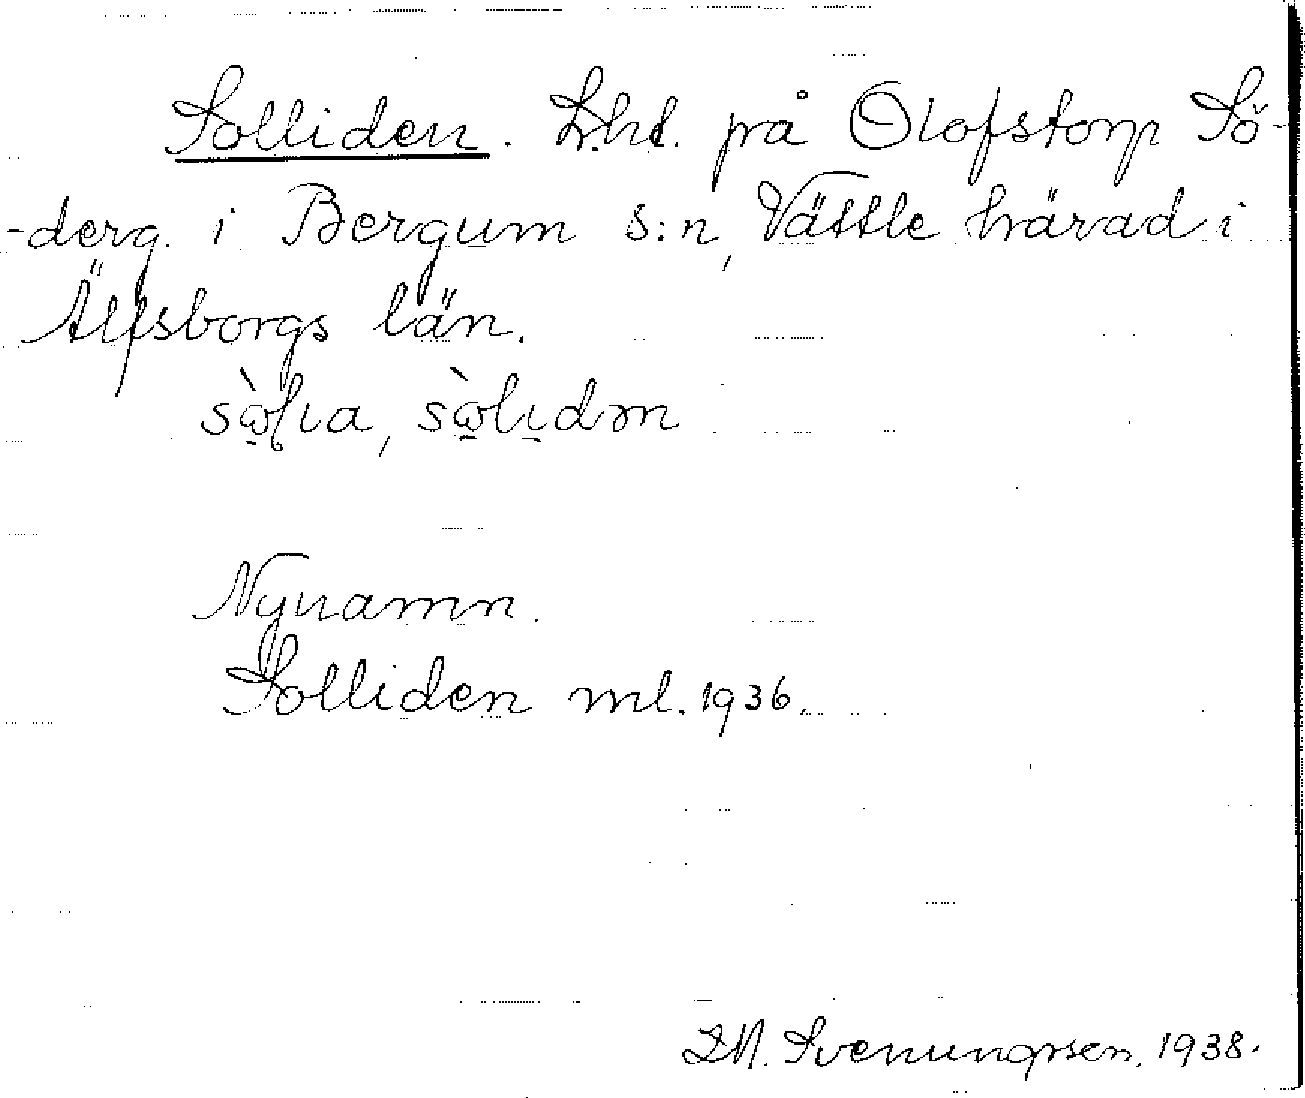 Solliden. Lht. på Olofstorp Sö-
-derg. i Bergum s:n, Vättle härad i
Älfsborgs län.
sὼlıa, sὼlıdən
Nynamn.
Solliden ml. 1936.
D.N. Svenungsen. 1938.